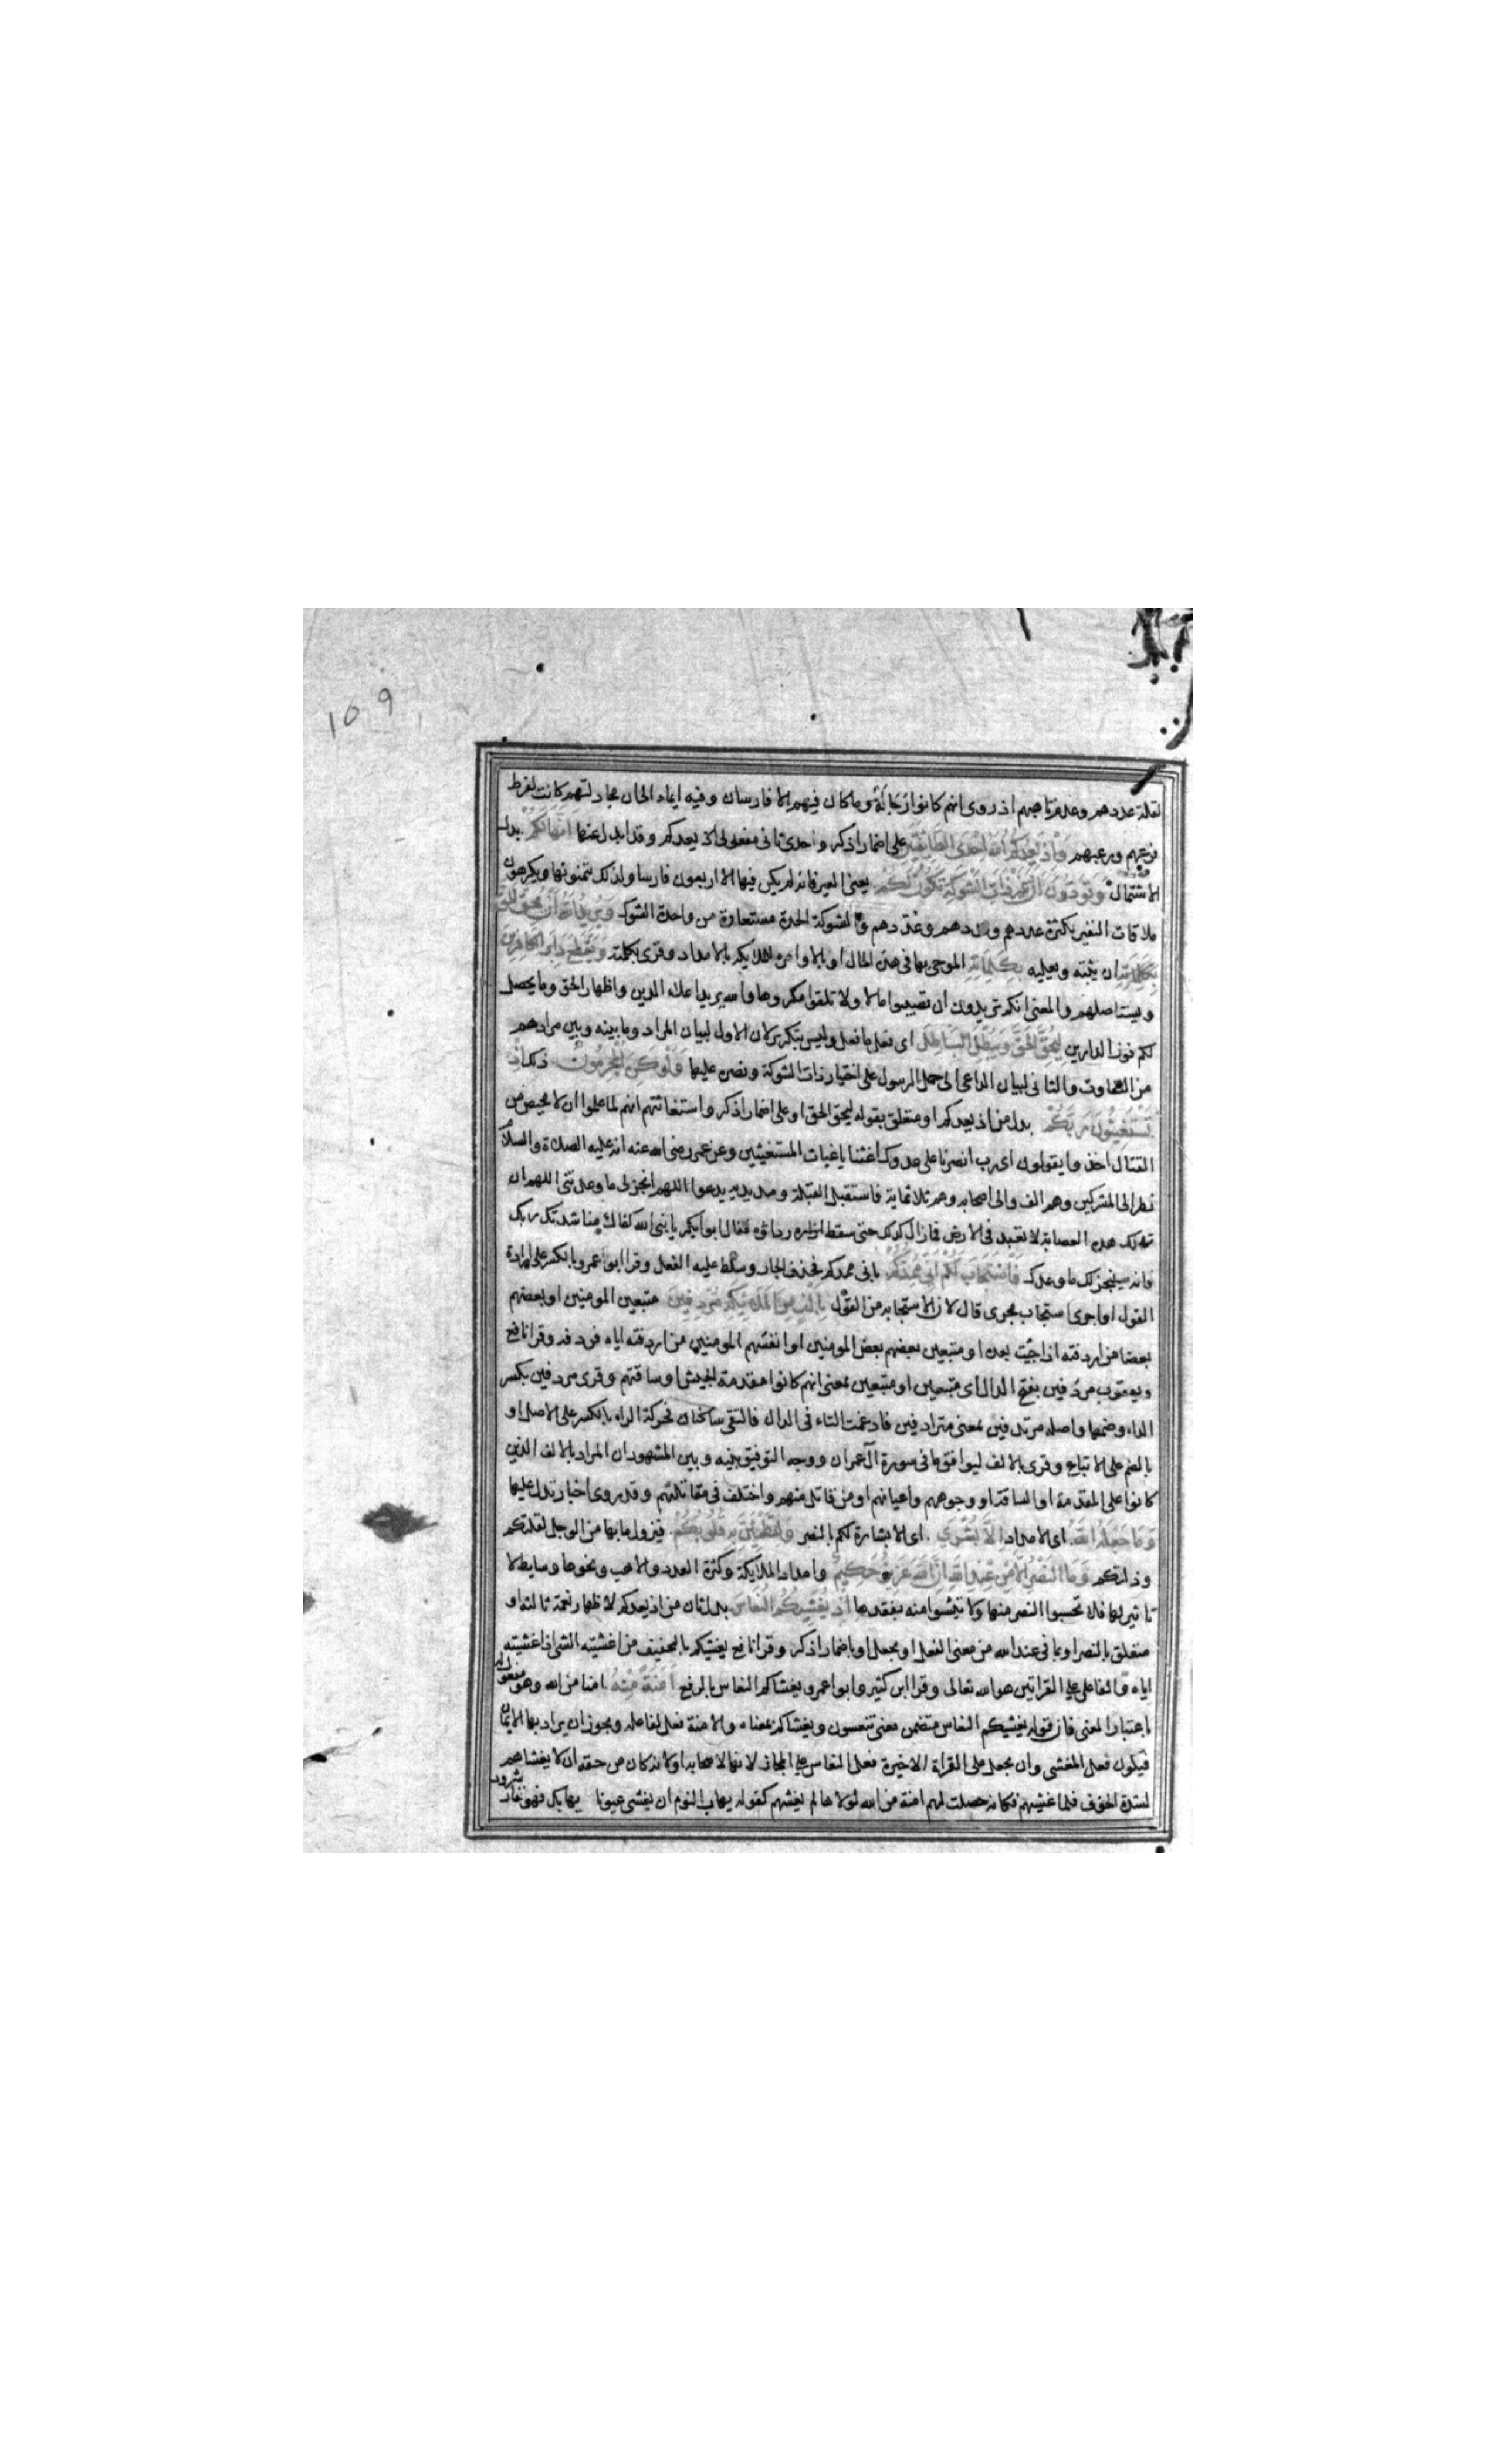 109
لقلة عددهم وعدم تاهبهم اذ روى انهم كانوا رجالة وما كان فيهم الا فارسان وفيه ايماء الى ان مجادلتهم كانت لفرط
فزعهم ورعبهم وَاِذْ يَعِدُكُمُ اللهُ اِحْدَى الطَّائِفَتَيْنِ على اضمار اذكر واحدى ثانى مفعولى يعدكم وقد ابدل عنها اَنَّهَا لَكُمْ بدل
الاشتمال وَتَوَدُّونَ اَنَّ غَيْرَ ذَاتِ الشَّوْكَةِ تَكُونُ لَكُمْ يعنى العير فانه لم يكن فيها الا اربعون فارسا ولذلك يتمنونها ويكرهون
ملاقات النفير بكثرة عددهم وعددهم والشوكة الحدة مستعارة من واحدة الشوك وَيُرِيدُ اللهُ اَنْ يُحِقَّ الحَقَّ
ان يثبته ويعليه بِكَلِمَاتِهِ الموحى بها فى هذه الحال او باوامره للملايكة بالامداد وقرى بكلمته وَيَقْطَعَ دَابِرَ الكَافِرِينَ
ويستاصلهم والمعنى انكم تريدون ان تصيبوا مالا ولا تلقوا مكروها والله يريد اعلاء الدين واظهار الحق وما يحصل
لكم فوز الدارين لِيُحِقَّ الحَقَّ وَيُبْطِلَ البَاطِلَ اى فعل ما فعل وليس بتكرير لان الاول لبيان المراد وما بينه وبين مرادهم
من التفاوت والثانى لبيان الداعى الى حمل الرسول على اختيار ذات الشوكة ونصره عليها وَلَوْ كَرِهَ المُجْرِمُونَ ذلك اِذْ
تَسْتَغِيثُونَ رَبَّكُمْ بدل من اذ يعدكم او متعلق بقوله ليحق الحق او على اضمار اذكر واستغاثتهم انهم لما علموا ان لا محيص من
القتال اخذوا يقولون اى رب انصرنا على عدوك اغثنا يا غياث المستغيثين وعن عمر رضى الله عنه انه عليه الصلاة والسلام
نظر الى المشركين وهم الف والى اصحابه وهم ثلاثماية فاستقبل القبلة ومد يديه يدعوا اللهم انجز لى ما وعدتنى اللهم ان
تهلك هذه العصابة لا تعبد فى الارض فما زال كذلك حتى سقط رداؤه فقال ابو بكر يا نبى الله كفاك مناشدتك ربك
فانه سينجز لك ما وعدك فَاسْتَجَابَ لَكُمْ اَنِّى مُمِدُّكُمْ بانى ممدكم فحذف الجار وسلط عليه الفعل وقرا ابو عمرو بالكسر على ارادة
القول او اجرى استجاب مجرى قال لان الاستجابة من القول بِاَلْفٍ مِنَ المَلَائِكَةِ مُرْدِفِينَ متبعين المومنين او بعضهم
بعضا من اردفته اذا جئت بعده او متبعين بعضهم بعض المومنين او انفسهم المومنين من اردفته اياه فردفه وقرا نافع
ويعقوب مردفين بفتح الدال اى متبعين او متبعين بمعنى انهم كانوا مقدمة الجيش او ساقتهم وقرى مردفين بكسر
الراء وضمها واصله مرتدفين بمعنى مترادفين فادغمت التاء فى الدال فالتقى ساكنان فحركة الراء بالكسر على الاصل او
بالضم على الاتباع وقرى بالالف ليوافق ما فى سورة آل عمران ووجه التوفيق بينه وبين المشهور ان المراد بالالف الذين
كانوا على المقدمة او الساقة او وجوههم واعيانهم او من قاتل منهم واختلف فى مقاتلتهم وقد روى اخبار تدل عليها
وَمَا جَعَلَهُ اللهُ اى الامداد اِلَّا بُشْرَى اى الا بشارة لكم بالنصر وَلِتَطْمَئِنَّ بِهِ قُلُوبُكُمْ فيزول ما بها من الوجل لقلتكم
وذلتكم وَمَا النَّصْرُ اِلَّا مِنْ عِنْدِ اللهِ اِنَّ اللهَ عَزِيزٌ حَكِيمٌ وامداد الملايكة وكثرة العدد والاهب ونحوها وسايط لا
تاثير لها فلا تحسبوا النصر منها ولا تيئسوا منه بفقدها اِذْ يُغْشِيكُمُ النُّعَاسَ بدل ثان من اذ يعدكم لاظهار نعمة ثالثة او
متعلق بالنصر او بما فى عند الله من معنى الفعل او بجعل او باضمار اذكر وقرا نافع يغشيكم بالتخفيف من اغشيته الشى اذا غشيته
اياه والفاعل على القراتين هو الله تعالى وقرا ابن كثير وابو عمرو يغشاكم النعاس بالرفع اَمَنَةً مِنْهُ امنا من الله وهو مفعول له
باعتبار المعنى فان قوله يغشيكم النعاس متضمن معنى تنعسون ويغشاكم بمعناه والامنة فعل لفاعله ويجوز ان يراد بها الايمان
فيكون فعل المغشى وان يجعل على القراة الاخيرة فعل النعاس على المجاز لانها لاصحابه او لانه كان من حقه ان لا يغشاهم
لشدة الخوف فلما غشيهم فكانه حصلت لهم امنة من الله لولاها لم يغشهم كقوله يهاب النوم ان يغشى عيونا يهابك فهو نفار شرود